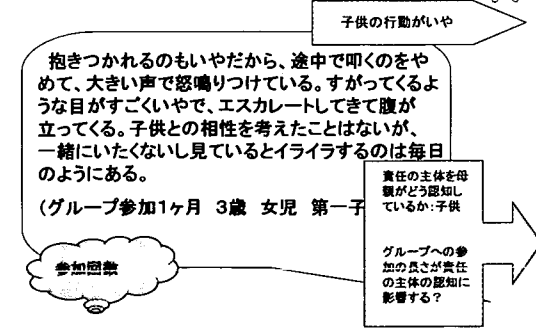 子供の行動がいや
抱きつかれるのもいやだから、途中で叩くのをや
めて、大きい声で怒鳴りつけている。すがってくるよ
うな目がすごくいやで、エスカレートしてきて腹が
立ってくる。子供との相性を考えたことはないが、
一緒にいたくないし見ているとイライラするのは毎日
のようにある。
(グループ参加1ヶ月 3歳 女児 第一子
責任の主体を母
親がどう認知し
ているか:子供
グループへの参
加の長さが責任
の主体の認知に
影響する?
参加回数